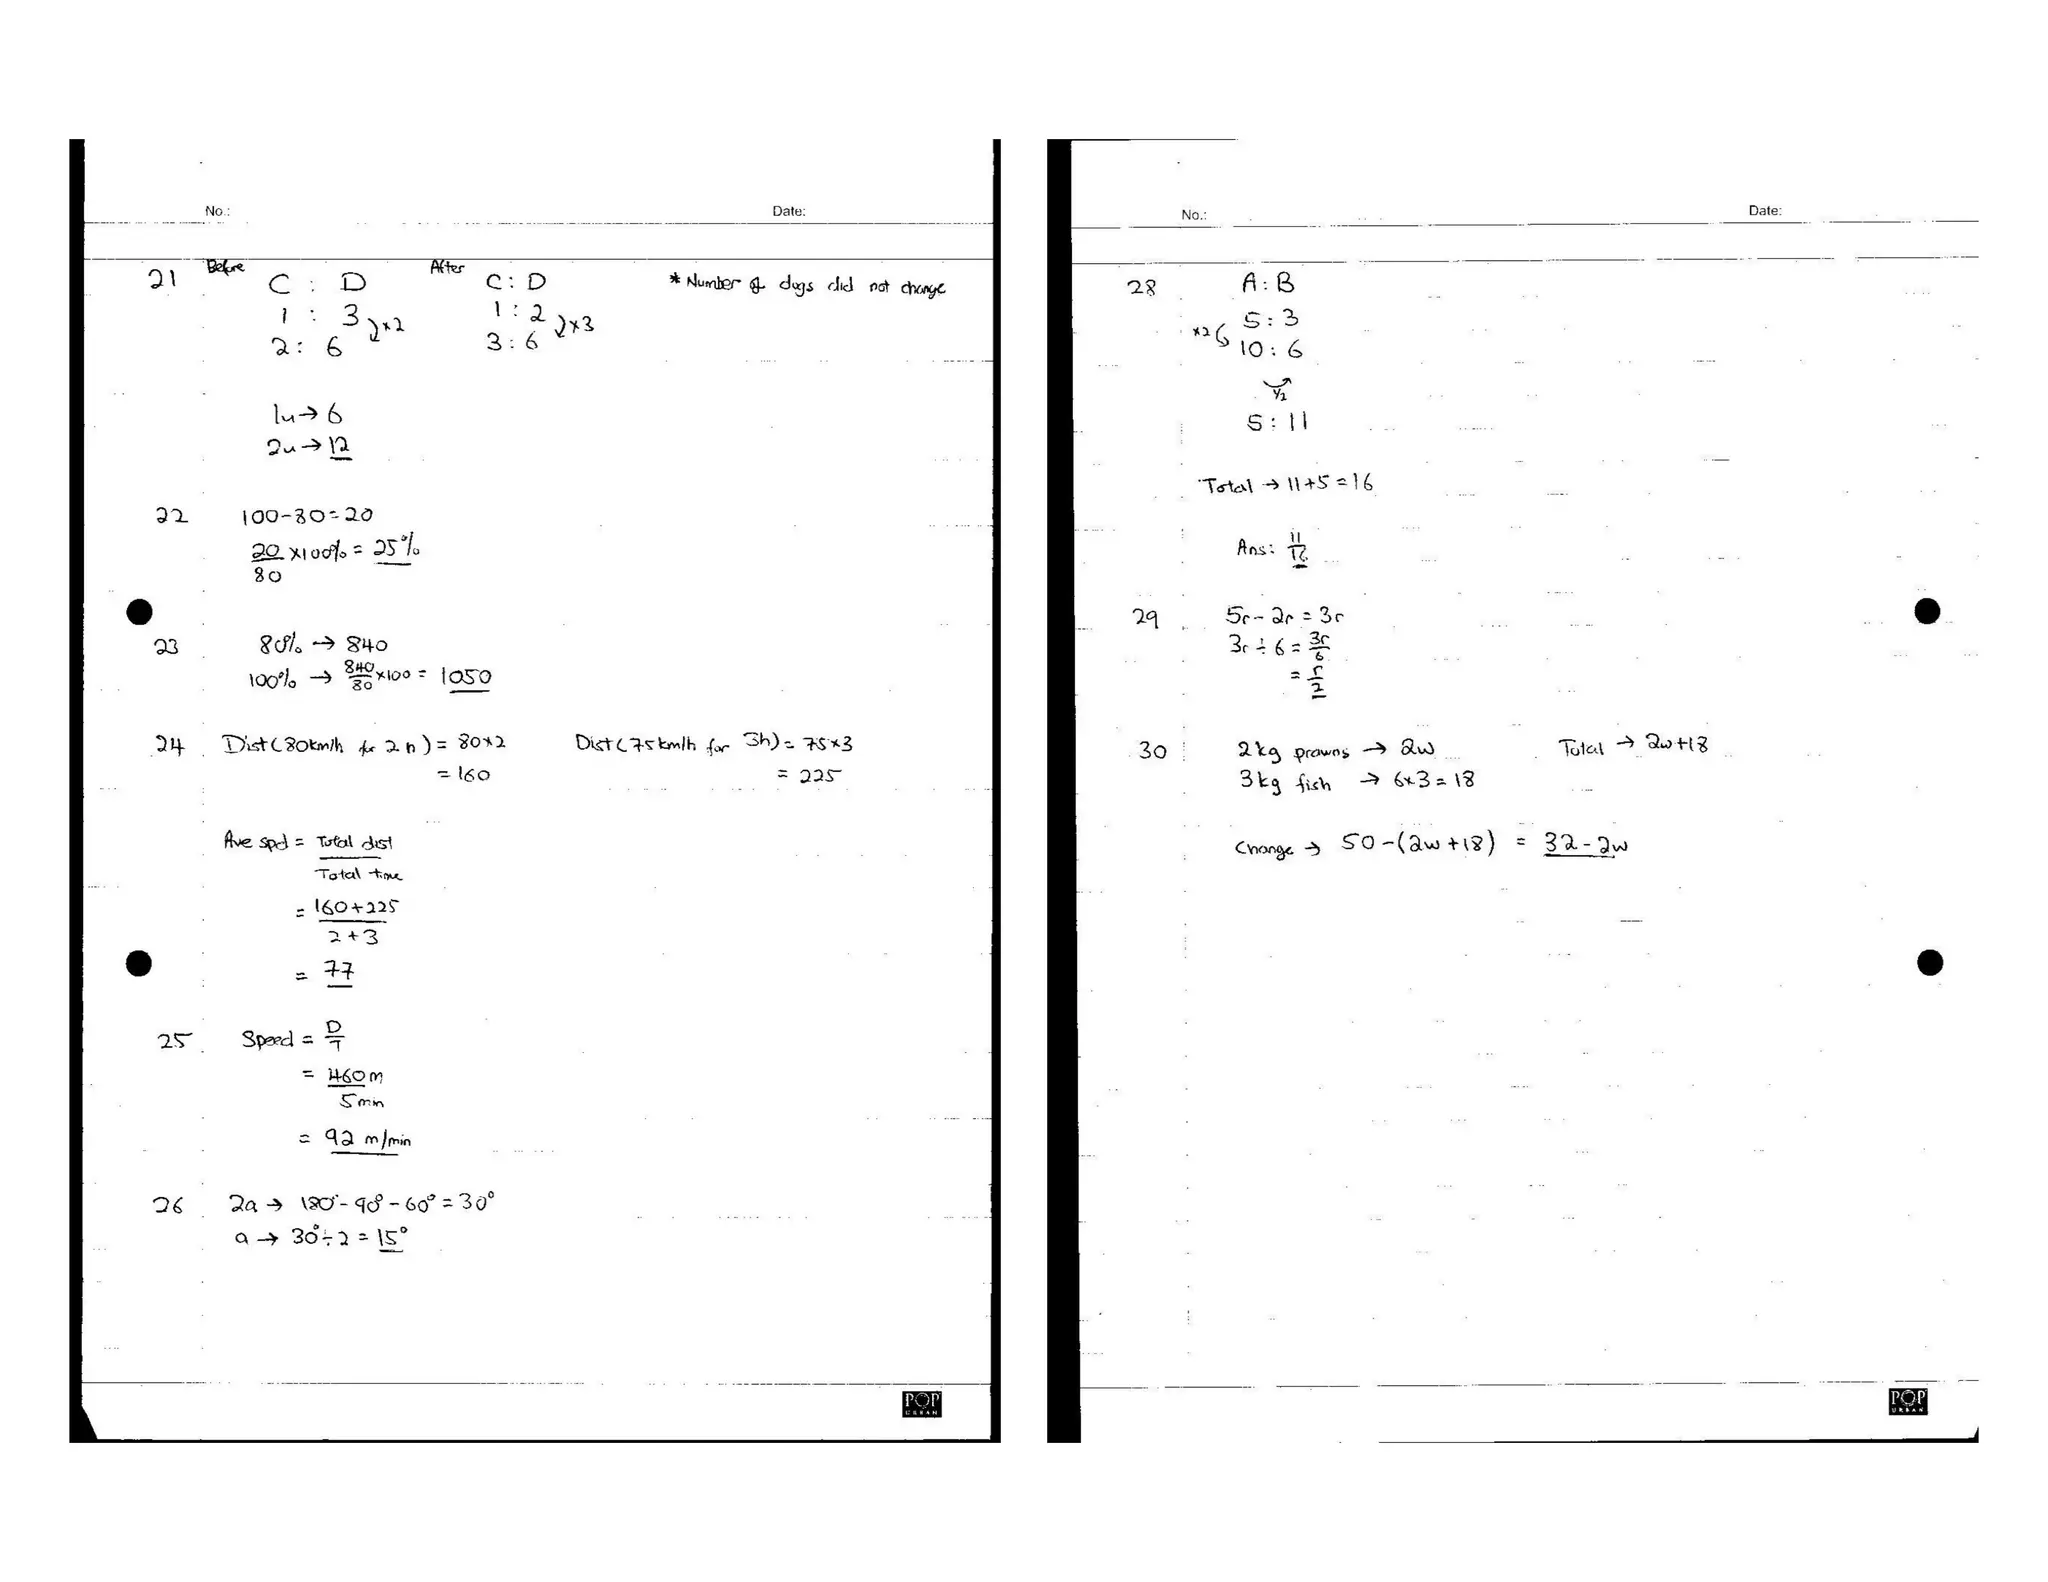 No.:
Date:
21 Before After
C : D C : D * Number of dogs did not change
1 : 3 1 : 2
×2 ×3
2 : 6 3 : 6
1u → 6
2u → 12
22 100-80=20
20/80 ×100% = 25%
23 80% → 840
100% → 840/80 ×100 = 1050
24 Dist (80km/h for 2 h) = 80×2 Dist (75km/h for 3h) = 75×3
= 160 = 225
Ave spd = Total dist
Total time
= 160+225
2+3
= 77
25 Speed = D/T
= 460m
5min
= 92 m/min
26 2a → 180°-90°-60°=30°
a → 30°÷2 = 15°
POP
URBAN
No.:
Date:
28 A : B
5 : 3
×2
10 : 6
1/2
5 : 11
Total → 11+5=16
Ans: 11/16
29 5r - 2r = 3r
3r ÷ 6 = 3r/6
= r/2
30 2kg prawns → 2w Total → 2w+18
3kg fish → 6×3=18
Change → 50-(2w+18) = 32-2w
POP
URBAN